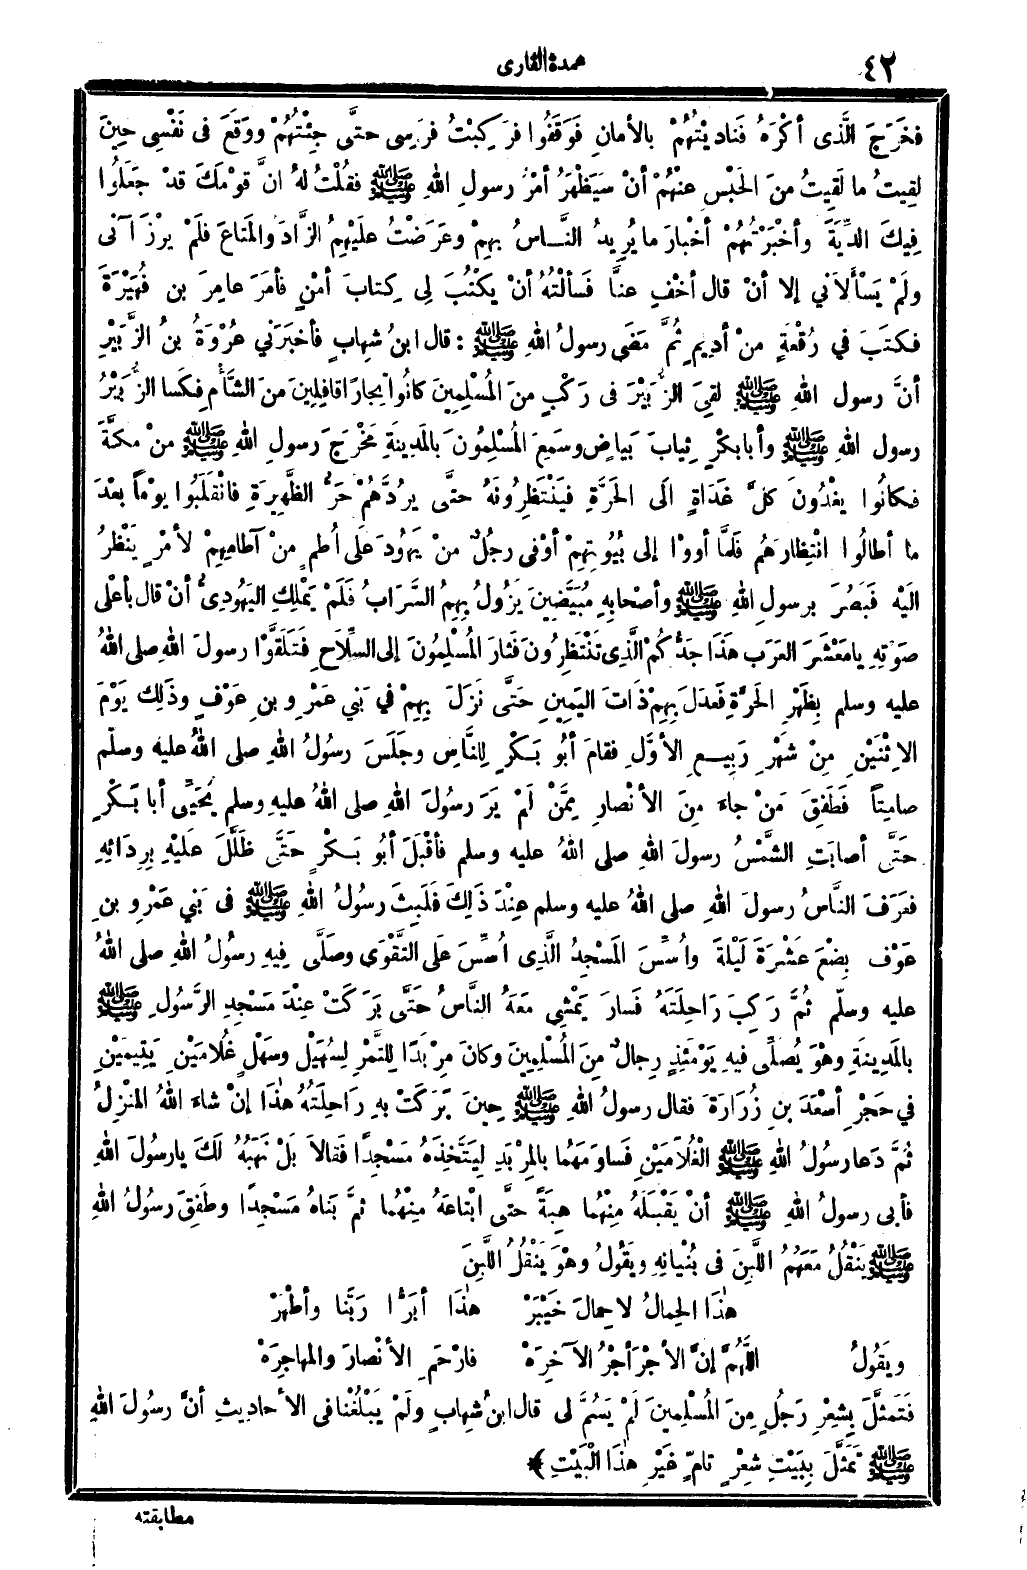 ٤٢
عمدة القارى
فَخَرَجَ الَّذِى أَكْرَهُ فَنَادَيْتُهُمْ بِالأَمانِ فَوَقَفُوا فَرَكِبْتُ فَرَسِى حتَّى جِئْتُهُمْ ووَقَعَ فى نَفْسِى حِينَ
لَقِيتُ ما لَقِيتُ مِنَ الحَبْسِ عنْهُمْ أنْ سَيَظْهَرُ أمْرُ رسولِ اللهِ ﷺ فقُلْتُ لهُ انَّ قَوْمَكَ قدْ جَعَلُوا
فِيكَ الدِّيَةَ وأخْبَرْتُهُمْ أخْبارَ ما يُرِيدُ النَّاسُ بِهِمْ وعَرَضْتُ علَيْهِمِ الزَّادَ والمَتاعَ فلَمْ يَرْزَآنى
ولَمْ يَسْألانَي إلا أنْ قال أخْفِ عنَّا فَسألْتُهُ أنْ يكْتُبَ لِى كِتابَ أمْنٍ فأمَرَ عامِرَ بن فُهَيْرَةَ
فكتَبَ في رُقْعَةٍ منْ أدِيمٍ ثُمَّ مَضَى رسولُ اللهِ ﷺ : قال ابنُ شِهابٍ فأخبَرَنِي عُرْوَةُ بنُ الزُّبَيْرِ
أنَّ رسول اللهِ ﷺ لقِىَ الزُّبَيْرَ فى رَكْبٍ منَ المُسْلِمِينَ كانُوا تِجارًا قافِلِينَ منَ الشَّأْمِ فكَسا الزُّبَيْرُ
رسول اللهِ ﷺ وأبا بكْرٍ ثِيابَ بَياضٍ وسَمِعَ المُسْلِمُونَ بالمَدِينَةِ مَخْرَجَ رسولِ اللهِ ﷺ منْ مكَّةَ
فكانُوا يغْدُونَ كلَّ غَدَاةٍ الَى الحَرَّةِ فيَنْتَظِرُونَهُ حتَّى يرُدَّهُمْ حَرُّ الظَّهِيرَةِ فانْقَلَبُوا يوْماً بعْدَ
ما أطالُوا انْتِظارَهُمْ فلَمَّا أووْا إلى بُيُوتِهِمْ أوْفى رجُلٌ منْ يَهُودَ علَى أُطُمٍ منْ آطامِهِمْ لأمْرٍ يَنْظُرُ
الَيْهِ فَبَصُرَ برسولِ اللهِ ﷺ وأصْحابِهِ مُبَيَّضِينَ يَزُولُ بِهِمِ السَّرَابُ فلَمْ يَمْلِكِ اليَهُودِىُّ أنْ قال بأعْلى
صَوْتِهِ يا مَعْشَرَ العَرَبِ هَذَا جَدُّكُمْ الَّذِى تَنْتَظِرُونَ فَثارَ المُسْلِمُونَ إلى السِّلاَحِ فتَلَقَّوْا رسولَ اللهِ صلى اللهُ
عليه وسلم بِظَهْرِ الحَرَّةِ فعَدلَ بِهِمْ ذَاتَ اليَمِينِ حَتَّى نَزَلَ بِهِمْ فِي بَنِي عَمْرِو بنِ عَوْفٍ وذَلِكَ يَوْمَ
الاِثْنَيْنِ مِنْ شَهْرِ رَبِيعٍ الأوَّلِ فقامَ أبُو بَكْرٍ لِلنَّاسِ وجَلَسَ رسُولُ اللهِ صلى اللهُ عليه وسلّم
صامِتاً فَطَفِقَ مَنْ جاءَ مِنَ الأنْصارِ مِمَّنْ لَمْ يَرَ رسُولَ اللهِ صلى اللهُ عليهِ وسلم يُحَيِّى أبا بَكْرٍ
حَتَّى أصابَتِ الشَّمْسُ رسولَ اللهِ صلى اللهُ عليه وسلم فأقْبَلَ أبُو بَكْرٍ حَتَّى ظَلَّلَ عَلَيْهِ بِرِدَائِهِ
فعَرَفَ النَّاسُ رسولَ اللهِ صلى اللهُ عليه وسلم عِنْدَ ذَلِكَ فَلَبِثَ رسُولُ اللهِ ﷺ فى بَنِي عَمْرِو بنِ
عَوْفٍ بِضْعَ عَشْرَةَ لَيْلَةً وأُسِّسَ المَسْجِدُ الَّذِى اُسِّسَ علَى التَّقْوَى وصَلَّى فِيهِ رسُولُ اللهِ صلى اللهُ
عليه وسلّم ثُمَّ رَكِبَ رَاحِلَتَهُ فَسارَ يَمْشِي مَعَهُ النَّاسُ حَتَّى بَرَكَتْ عِنْدَ مَسْجِدِ الرَّسُولِ ﷺ
بالمَدِينَةِ وهْوَ يُصَلِّى فِيهِ يَوْمَئِذٍ رِجالٌ مِنَ المُسْلِمِينَ وكانَ مِرْبَدًا لِلتَّمْرِ لِسُهَيْلٍ وسَهْلٍ غُلامَيْنِ يَتِيمَيْنِ
فِي حَجْرِ أسْعَدَ بنِ زُرَارَةَ فقال رسولُ اللهِ ﷺ حِينَ بَرَكَتْ بِهِ رَاحِلَتُهُ هٰذَا إنْ شاءَ اللهُ المَنْزِلُ
ثُمَّ دَعا رسُولُ اللهِ ﷺ الْغُلاَمَيْنِ فَساوَمَهُما بالمِرْبَدِ لِيَتَّخِذَهُ مَسْجِدًا فَقالاَ بَلْ نَهَبُهُ لَكَ يا رسُولَ اللهِ
فأبى رسولُ اللهِ ﷺ أنْ يَقْبَلَهُ مِنْهُما هِبَةً حتَّى ابْتاعَهُ مِنْهُما ثمَّ بَناهُ مَسْجِدًا وطَفِقَ رسُولُ اللهِ
ﷺ يَنْقُلُ مَعَهُمُ اللَّبِنَ فى بُنْيانِهِ ويَقُولُ وهْوَ يَنْقُلُ اللَّبِنَ
هٰذَا الحِمالُ لا حِمالَ خَيْبَرْ    هٰذَا أبَرُّ رَبَّنا وأطْهَرْ
ويَقُولُ    اللَّهُمَّ إنَّ الأجْرَ أجْرُ الآخِرَهْ    فارْحَمِ الأنْصارَ والمهاجِرَهْ
فَتَمثَّلَ بِشِعْرِ رَجُلٍ مِنَ المُسْلِمِينَ لَمْ يُسَمَّ لى قال ابنُ شِهابٍ ولَمْ يَبْلُغْنا فى الأحاديثِ أنَّ رسولَ اللهِ
ﷺ تَمَثَّلَ بِبَيْتِ شِعْرٍ تامٍّ غَيْرِ هٰذَا الْبَيْتِ ﴾
مطابقته